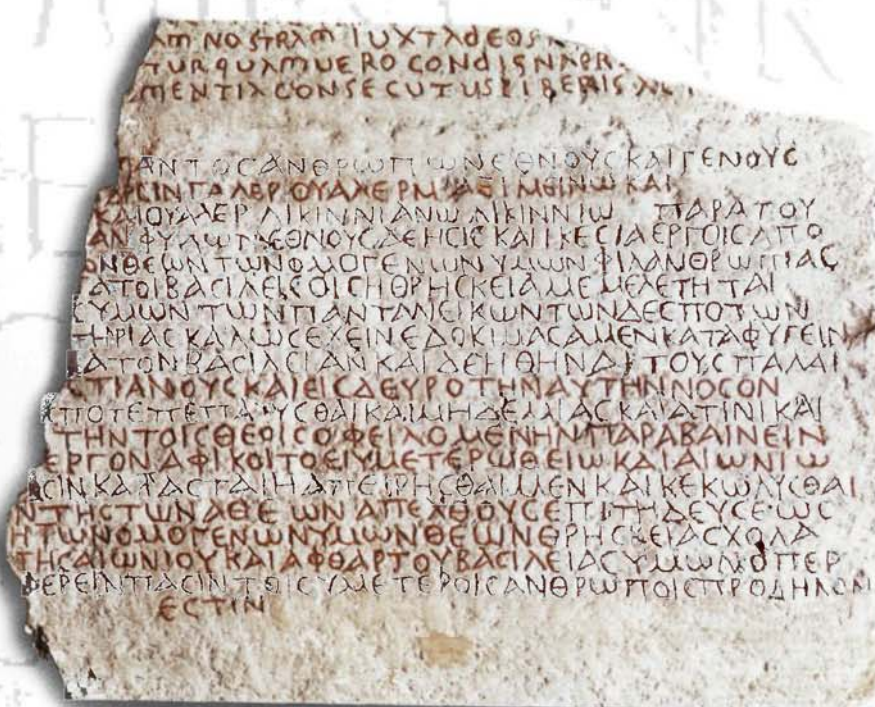 ΑΜ NOSTRAM IUXTA DEOS
TUR QUAM UERO CONDIGNA PR
MENTIA CONSECUTUS LIBERIS
ΑΝΤΟϹ ΑΝΘΡΩΠΩΝ ΕΘΝΟΥϹ ΚΑΙ ΓΕΝΟΥϹ
ΓΑΛ ΒΑΛΕΡ ΜΑΞΙΜΕΙΝΩ ΚΑΙ
ΚΑΙ ΟΥΑΛΕΡ ΛΙΚΙΝΝΙΑΝΩ ΛΙΚΙΝΝΙΩ ΠΑΡΑ ΤΟΥ
ΑΝΦΥΛΩΝ ΕΘΝΟΥϹ ΔΕΗϹΙϹ ΚΑΙ ΙΚΕϹΙΑ ΕΡΓΟΙϹ ΑΠΟ
ΘΕΩΝ ΤΩΝ ΟΜΟΓΕΝΩΝ ΥΜΩΝ ΦΙΛΑΝΘΡΩΠΙΑϹ
ΑΤΟΙ ΒΑϹΙΛΕΙϹ ΟΙϹ Η ΘΡΗϹΚΕΙΑ ΜΕΜΕΛΕΤΗΤΑΙ
ΥΜΩΝ ΤΩΝ ΠΑΝΤΑ ΝΕΙΚΩΝΤΩΝ ΔΕϹΠΟΤΩΝ
ΤΗΡΙΑϹ ΚΑΛΩϹ ΕΧΕΙΝ ΕΔΟΚΙΜΑϹΑΜΕΝ ΚΑΤΑΦΥΓΕΙΝ
ΑΤΟΝ ΒΑϹΙΛΕΙΑΝ ΚΑΙ ΔΕΗΘΗΝΑΙ ΤΟΥϹ ΠΑΛΑΙ
ϹΤΙΑΝΟΥϹ ΚΑΙ ΕΙϹ ΔΕΥΡΟ ΤΗΝ ΑΥΤΗΝ ΝΟϹΟΝ
ΠΟΤΕ ΠΕΠΑΥϹΘΑΙ ΚΑΙ ΜΗΔΕΜΙΑϹ ΚΑΙ ΑΤΙΝΙ ΚΑΙ
ΤΗΝ ΤΟΙϹ ΘΕΟΙϹ ΟΦΕΙΛΟΜΕΝΗΝ ΠΑΡΑΒΑΙΝΕΙΝ
ΕΡΓΟΝ ΑΦΙΚΟΙΤΟ ΕΙ ΥΜΕΤΕΡΩ ΘΕΙΩ ΚΑΙ ΑΙΩΝΙΩ
ϹΙΝ ΚΑΤΑϹΤΑΙΗ ΑΠΕΙΡΗϹΘΑΙ ΜΕΝ ΚΑΙ ΚΕΚΩΛΥϹΘΑΙ
Ν ΤΗϹ ΤΩΝ ΑΘΕΩΝ ΑΠΕΧΘΟΥϹ ΕΠΙΤΗΔΕΥϹΕΩϹ
Η ΤΩΝ ΟΜΟΓΕΝΩΝ ΥΜΩΝ ΘΕΩΝ ΘΡΗϹΚΕΙΑ ϹΧΟΛΑ
ΤΗϹ ΑΙΩΝΙΟΥ ΚΑΙ ΑΦΘΑΡΤΟΥ ΒΑϹΙΛΕΙΑϹ ΥΜΩΝ ΟΠΕΡ
ΦΕΡΕΙΝ ΠΑϹΙΝ ΤΟΙϹ ΥΜΕΤΕΡΟΙϹ ΑΝΘΡΩΠΟΙϹ ΠΡΟΔΗΛΟΝ
ΕϹΤΙΝ